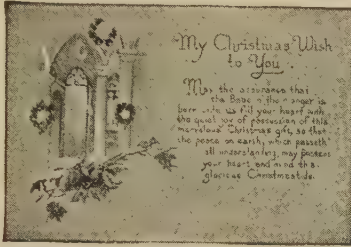 My Christmas Wish
to You
May the assurance that
the Babe in the manger is
born unto us fill your heart with
the quiet joy of possession of this
marvelous Christmas gift, so that
the peace on earth, which passeth
all understanding, may possess
your heart and mind this
glorious Christmastide.